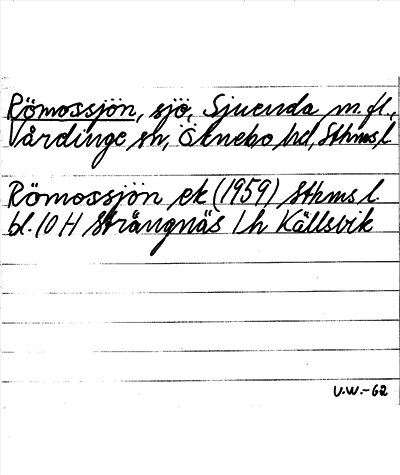 Römossjön, sjö, Sjuenda m.fl.,
Vårdinge sn, Öknebo hd, Sthms l
Römossjön ek (1959) Sthms l.
bl. 10 H Strängnäs 1h Källsvik
U.W.-62